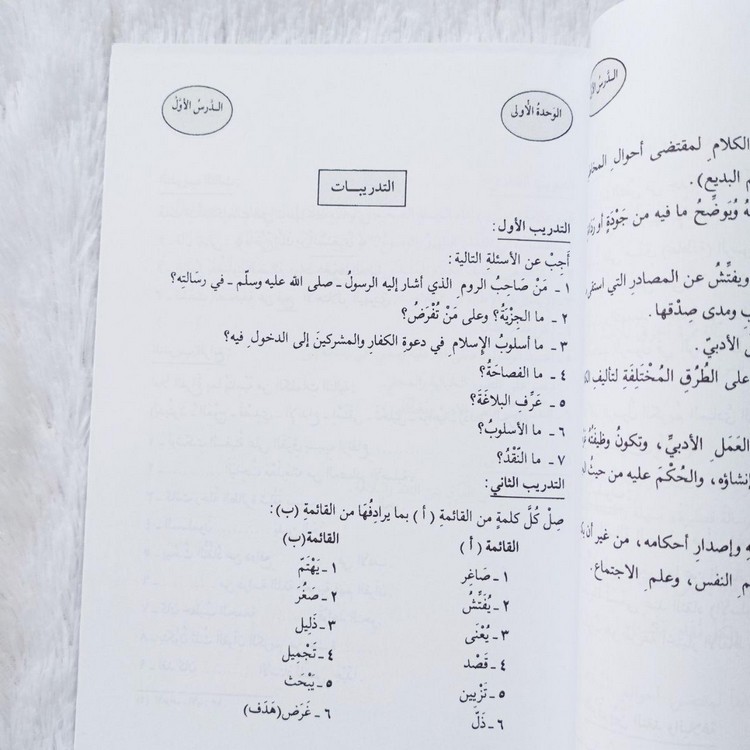 الوَحدةُ الأُولى
الـدَّرسُ الأوّلُ
التدريبـات
التدريب الأول :
أَجِبْ عن الأسئلةِ التالية :
١ - مَنْ صَاحِبُ الرومِ الذي أشار إليه الرسولُ - صلى الله عليه وسلّم - في رسَالتِه؟
٢ - ما الجِزْيَةُ؟ وعلى مَنْ تُفْرَضُ؟
٣ - ما أسلوبُ الإِسلامِ في دعوةِ الكفارِ والمشركينَ إلى الدخولِ فيه؟
٤ - ما الفصاحَةُ؟
٥ - عَرِّفِ البلاغَةَ؟
٦ - ما الأسلوبُ؟
٧ - ما النّقْدُ؟
التدريب الثاني :
صِلْ كُلَّ كلمةٍ من القائمةِ ( أ ) بما يرادِفُها من القائمةِ (ب) :
القائمة ( أ ) القائمة(ب)
١ - صَاغِر ١ - يَهْتَمّ
٢ - يُفَتِّشُ ٢ - صَغُرَ
٣ - يُعْنَى ٣ - ذَلِيل
٤ - قَصْد ٤ - تَجْمِيل
٥ - تَزْيِين ٥ - يَبْحَث
٦ - ذَلّ ٦ - غَرَض(هَدَف)
الـدَّرسُ
الكلامِ لمقتضى أحوالِ
م البديع) .
هُ ويُوَضِّحُ ما فيه من جَوْدَةٍ أو
ويفتِّشُ عن المصادرِ التي
بِ ومدى صِدْقها .
ل الأدبيّ .
على الطُرُقِ المُخْتَلِفَةِ لتأليف
العَمَلِ الأدبيِّ ، وتكونُ وظيفَتُهُ
إنشاؤه، والحُكْمَ عليه من حيثُ
وإصدارِ أحكامه، من غير أن
م النفس، وعلمِ الاجتماع .